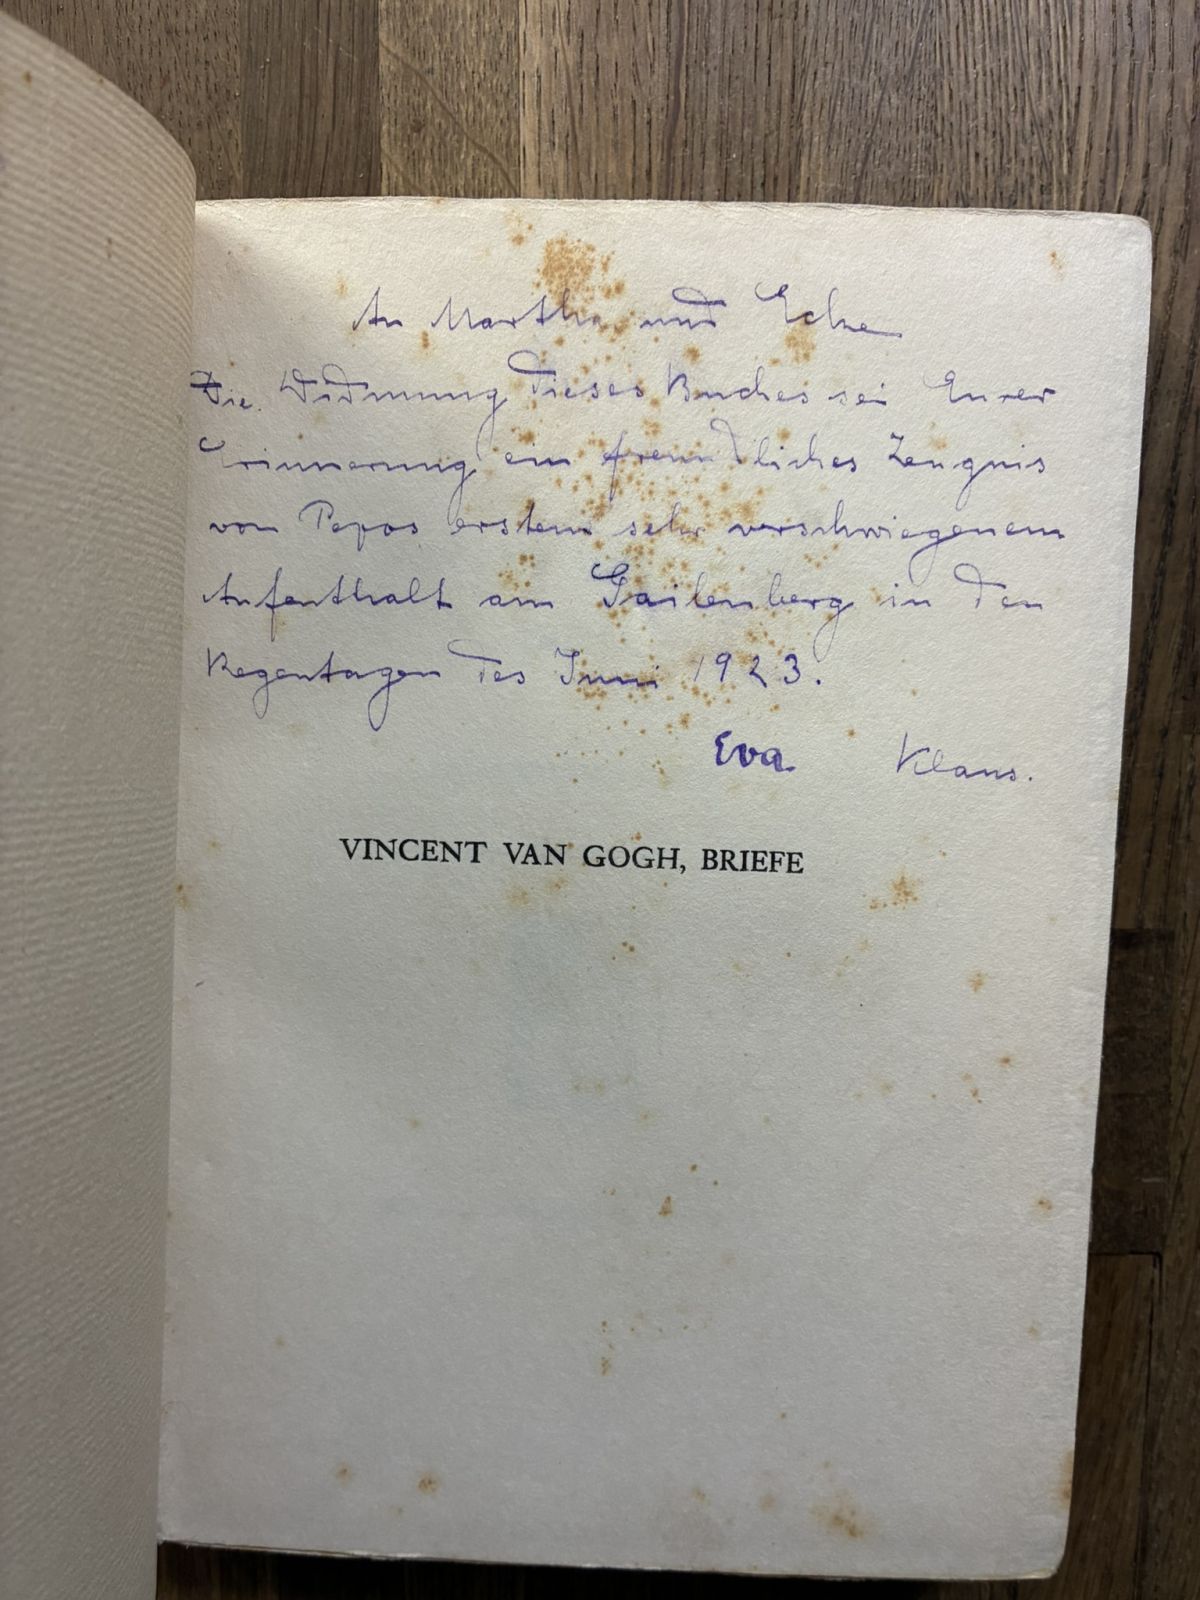 An Martha und Ecke
Die Widmung dieses Buches sei Eurer
Erinnerung ein freundliches Zeugnis
von Pepos erstem sehr verschwiegenem
Aufenthalt am Gailenberg in den
Regentagen des Juni 1923.
Eva Klaus.
VINCENT VAN GOGH, BRIEFE